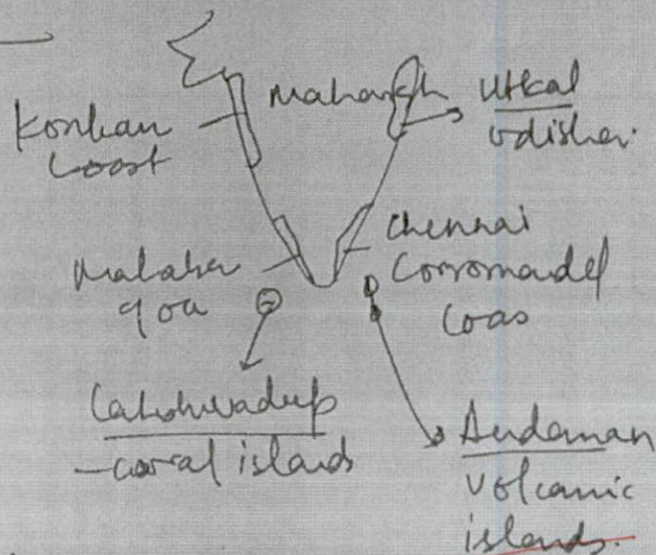 Konkan
Coast
Maharsh
Utkal
Odisha.
Malabar
goa
Chennai
Corromadel
Coas
Lakshwadup
- coral islands
Andaman
Volcanic
islands.